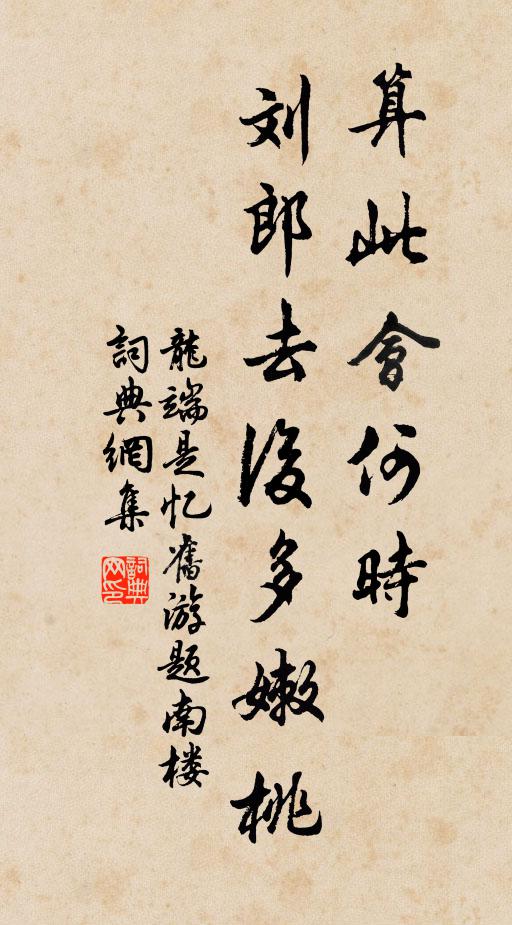 算此會何時
刘郎去後多嫩桃
龍端是忆舊游题南楼
詞典網集
詞典网印